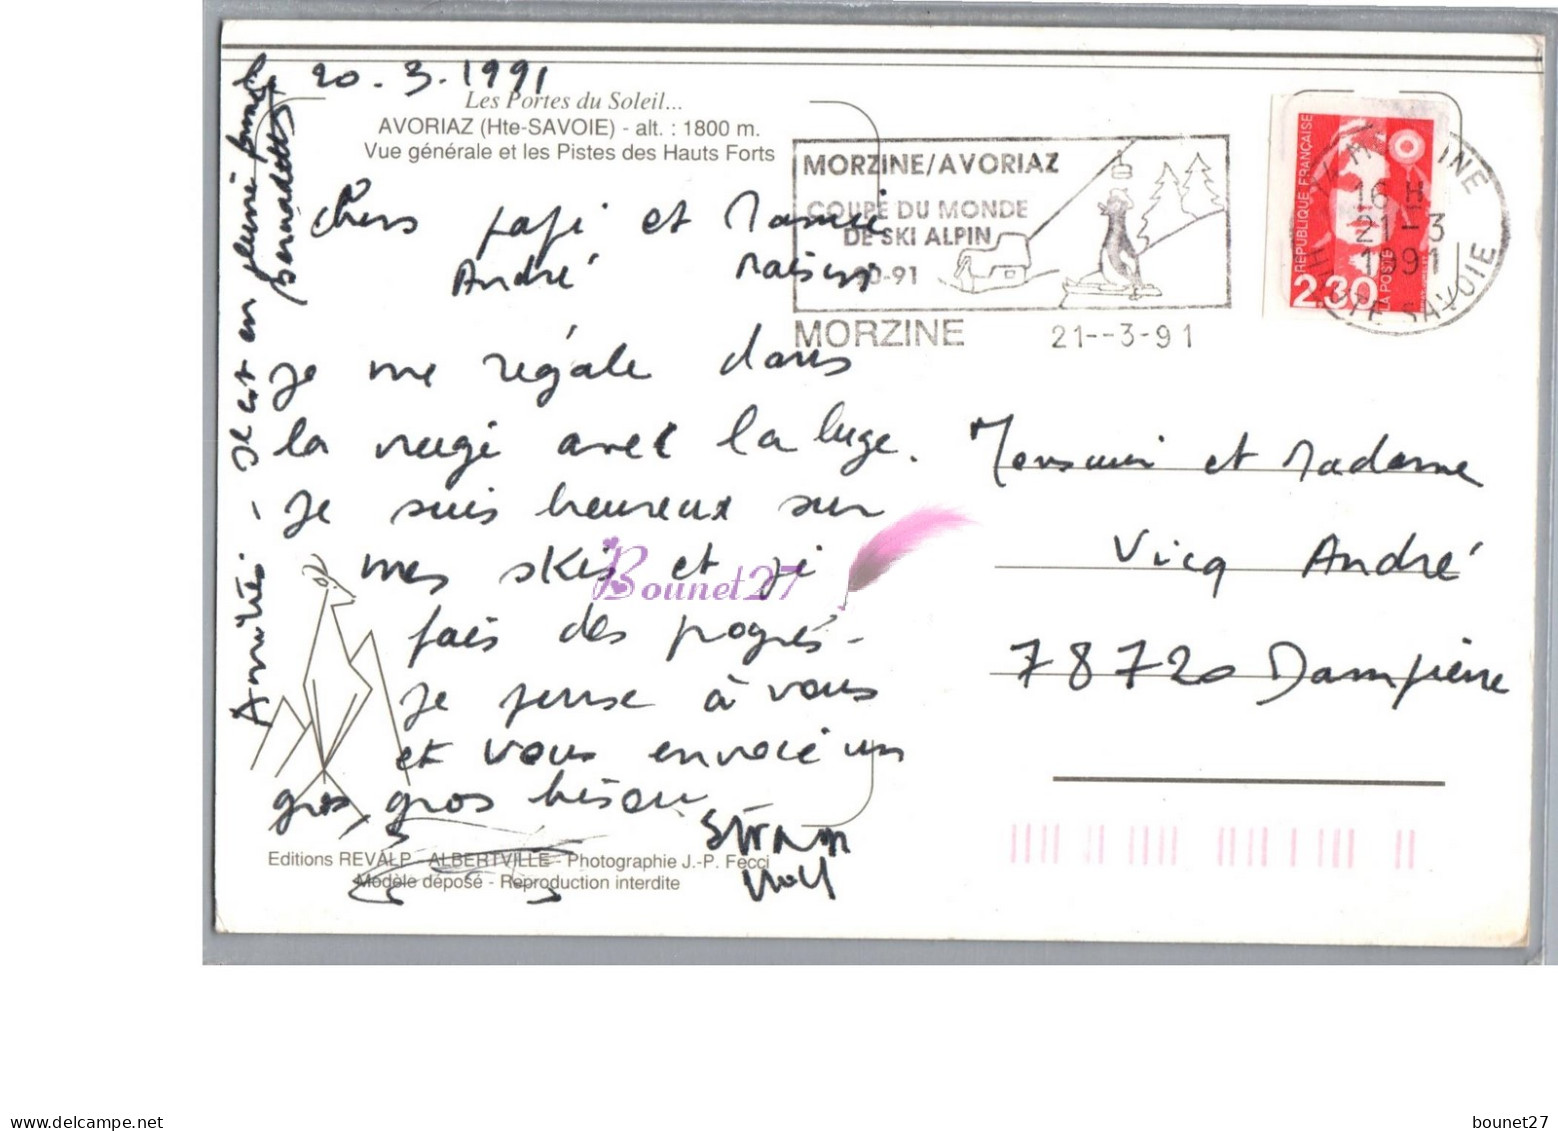 le 20-3-1991
Les Portes du Soleil...
AVORIAZ (Hte-SAVOIE) - alt. : 1800 m.
Vue générale et les Pistes des Hauts Forts
Chers papi et Mamie
André
je me régale dans
la neige avec la luge.
je suis heureux sur
mes skis et je
fais des progrès -
je pense à vous
et vous envoie un
gros, gros bisou
Amitiés - Il est en pleine forme
Bernadette
Editions REVALP - ALBERTVILLE - Photographie J.-P. Fecci
Modèle déposé - Reproduction interdite
MORZINE/AVORIAZ
COUPE DU MONDE
DE SKI ALPIN
90-91
MORZINE 21--3-91
RÉPUBLIQUE FRANÇAISE
LA POSTE
2,30
74 MORZINE
16 H
21-3
1991
HAUTE SAVOIE
Monsieur et Madame
Vicq André
78720 Dampierre
Bounet27
delcampe.net
bounet27